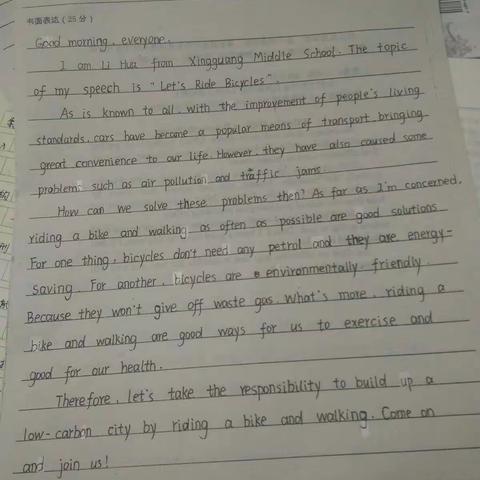 书面表达（25分）
Good morning, everyone.
I am Li Hua from Xingguang Middle School. The topic
of my speech is "Let's Ride Bicycles".
As is known to all, with the improvement of people's living
standards, cars have become a popular means of transport, bringing
great convenience to our life. However, they have also caused some
problems such as air pollution and traffic jams.
How can we solve these problems then? As far as I'm concerned,
riding a bike and walking as often as possible are good solutions
For one thing, bicycles don't need any petrol and they are energy-
saving. For another, bicycles are environmentally friendly.
Because they won't give off waste gas. What's more, riding a
bike and walking are good ways for us to exercise and
good for our health.
Therefore, let's take the responsibility to build up a
low-carbon city by riding a bike and walking. Come on
and join us!